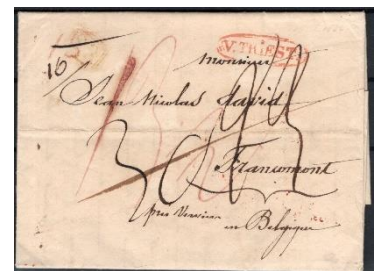 V. TRIEST
16
Monsieur
Jean Nicolas David
Francomont
près Verviers
en Belgique